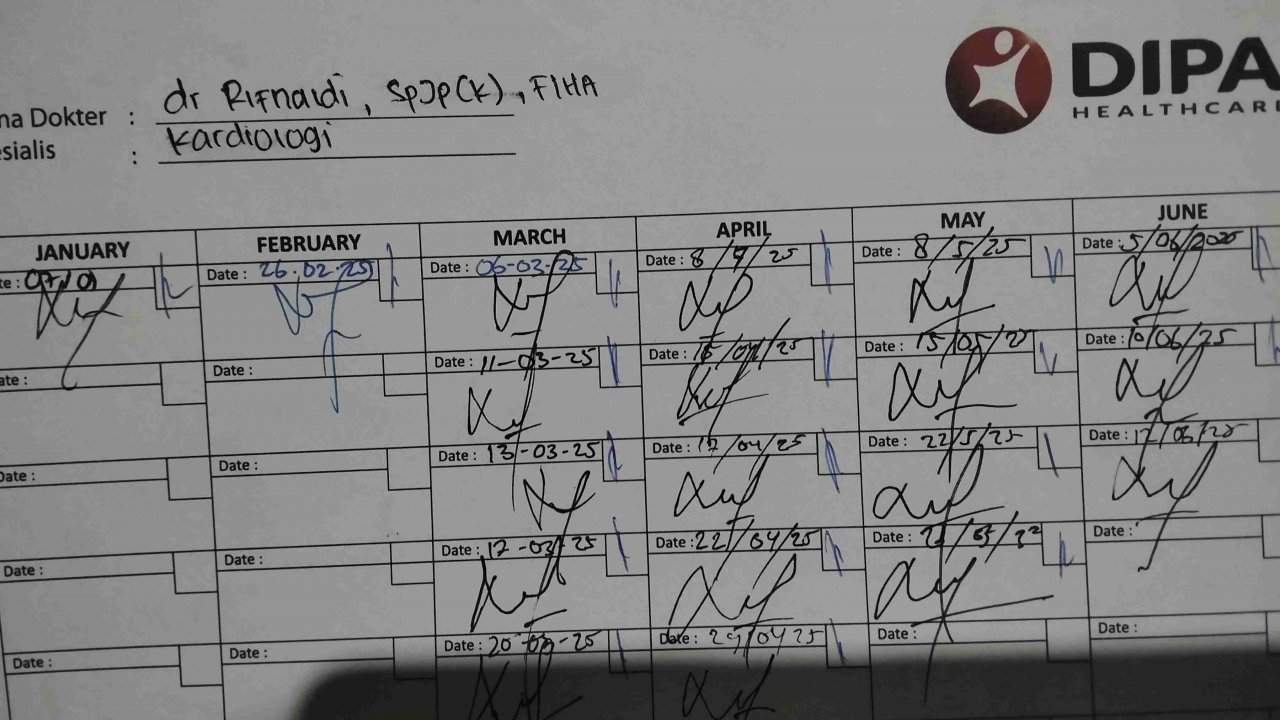 DIPA
HEALTHCARE
na Dokter : dr Rifnaldi, SpJP(K), FIHA
esialis : Kardiologi
JANUARY FEBRUARY MARCH APRIL MAY JUNE
te: 07/01 Date : 26.02.25 Date : 06-03-25 Date : 8/4/25 Date : 8/5/25 Date : 5/06/2025
ate : Date : Date : 11-03-25 Date : 15/04/25 Date : 15/05/25 Date : 10/06/25
Date : Date : Date : 13-03-25 Date : 17/04/25 Date : 22/5/25 Date : 17/06/25
Date : Date : Date : 17-03-25 Date : 22/04/25 Date : Date :
Date : Date : Date : 20-03-25 Date : 29/04 25 Date : Date :